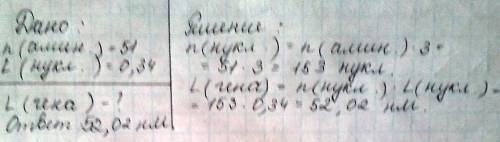 Дано:
n (амин.) = 51
L (нукл.) = 0,34
L (гена) = ?
Ответ 52,02 нм.
Решение:
n (нукл.) = n (амин.) · 3 =
= 51 · 3 = 153 нукл.
L (гена) = n (нукл.) · L (нукл.) =
= 153 · 0,34 = 52,02 нм.